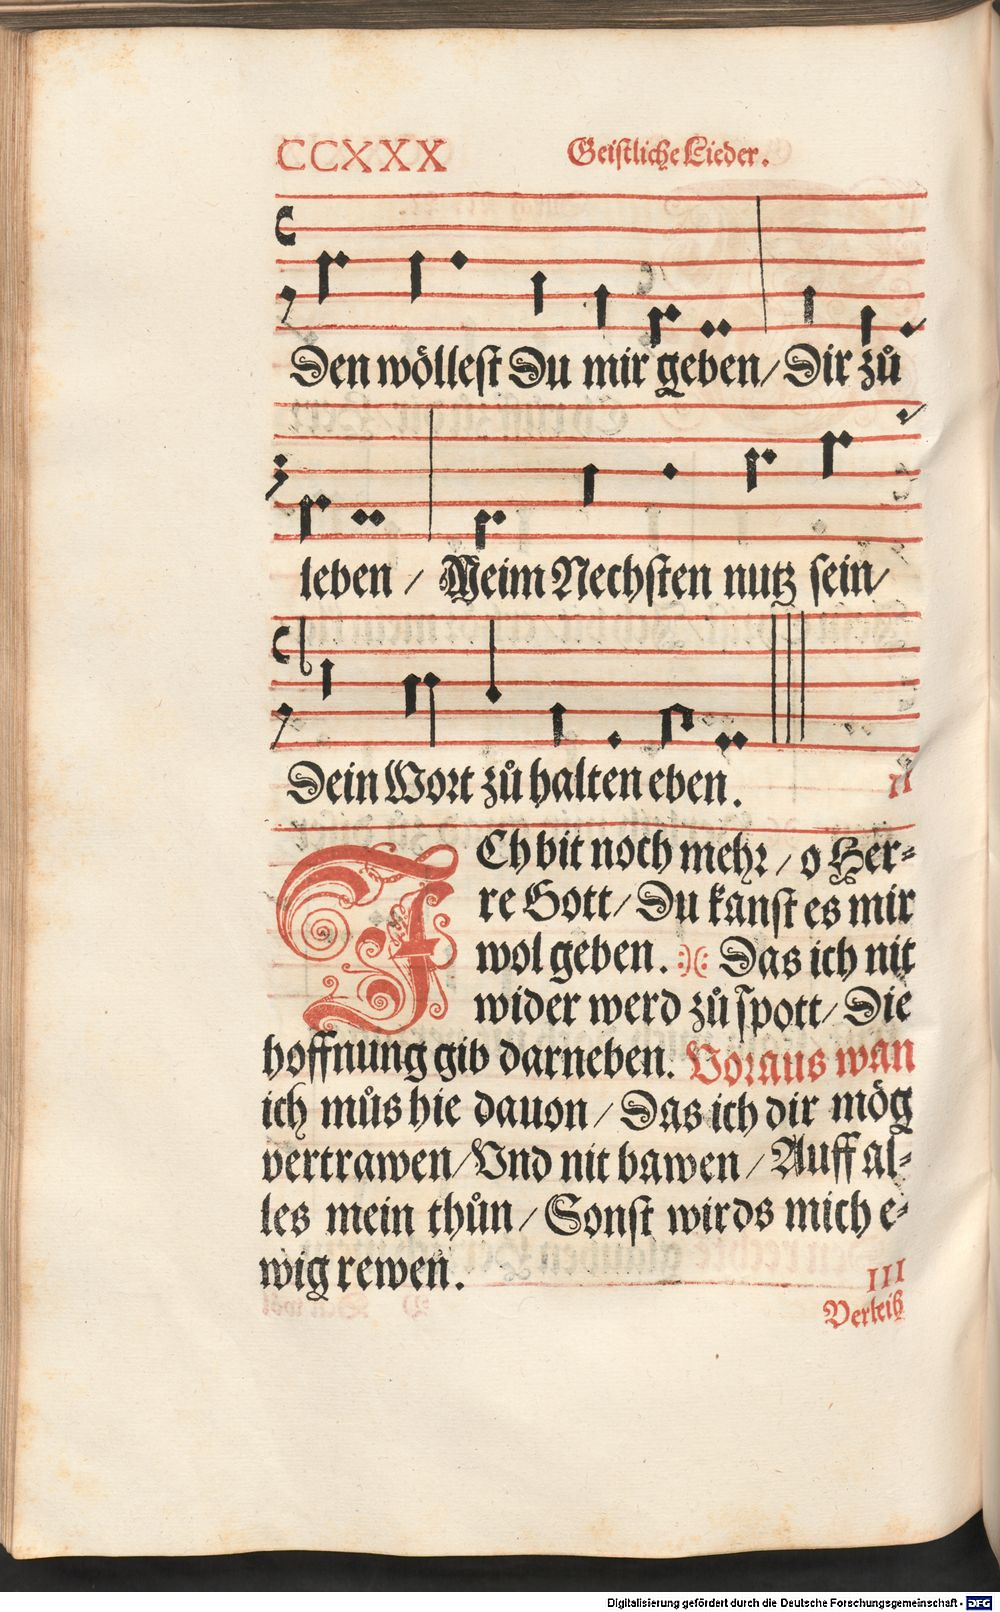 CCXXX Geistliche Lieder.
Den wöllest Du mir geben/ Dir zů
leben / Meim Nechsten nutz sein/
Dein Wort zů halten eben.
II
ICh bit noch mehr / o Her-
re Gott/ Du kanst es mir
wol geben. Das ich nit
wider werd zů spott/ Die
hoffnung gib darneben. Voraus wan
ich můs hie dauon / Das ich dir mög
vertrawen/ Vnd nit bawen / Auff al-
les mein thůn / Sonst wirds mich e-
wig rewen.
III
Verleiß
Digitalisierung gefördert durch die Deutsche Forschungsgemeinschaft - DFG